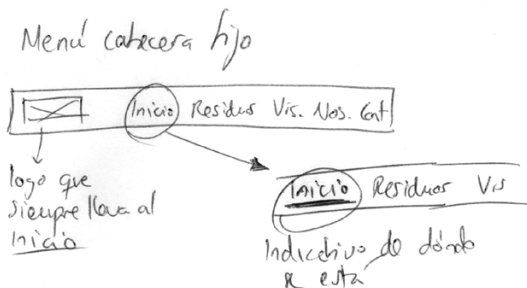 Menú cabecera fijo
Inicio Residuos Vis. Nos. Cont
logo que
siempre lleva al
inicio
INICIO Residuos Vis
Indicativo de dónde
se está